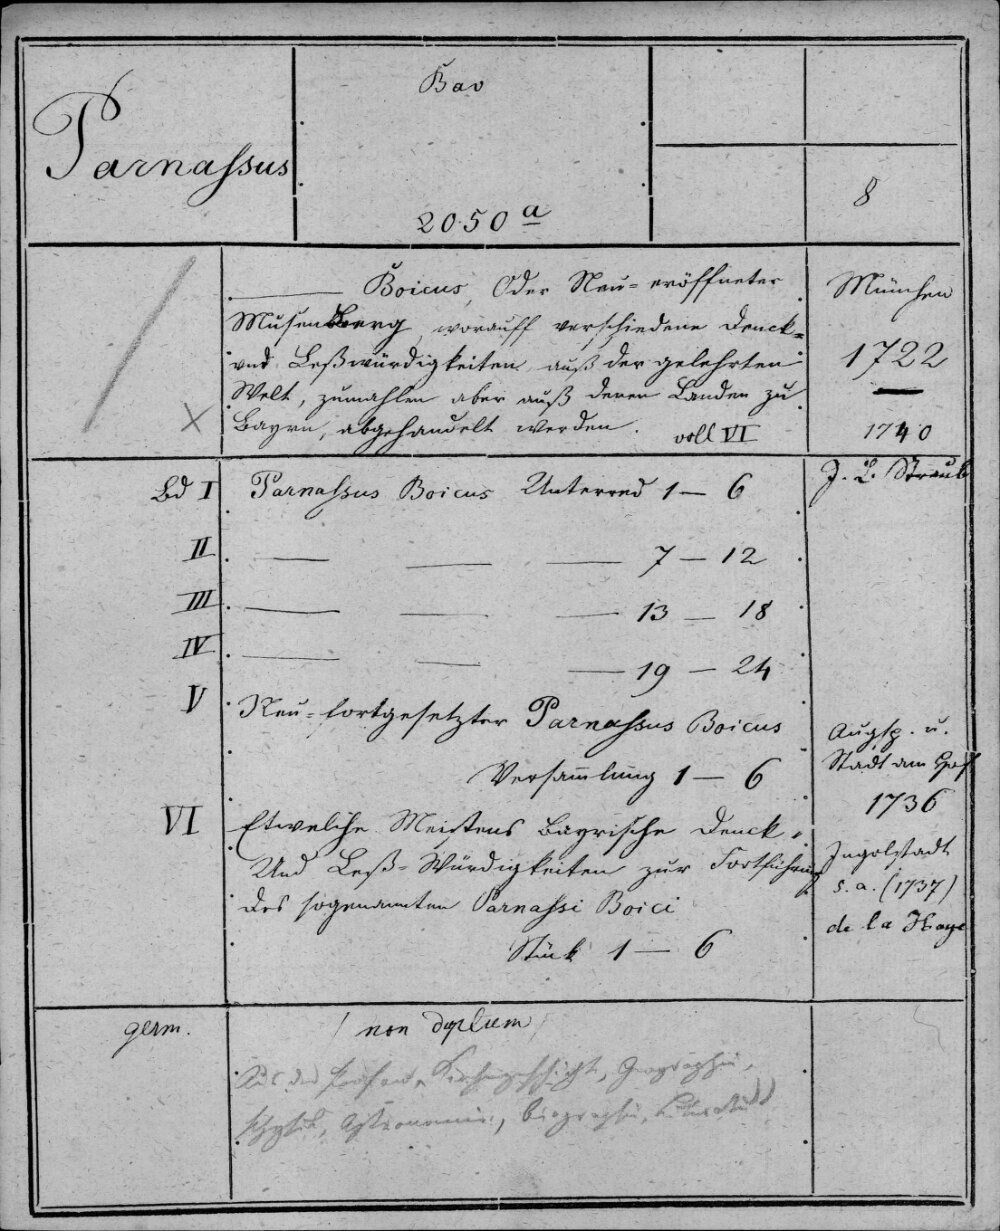 Parnassus
Bav
2050 a
8
— Boicus, Oder Neu-eröffneter
Musenberg, worauff verschiedene Denck-
und Leßwürdigkeiten auß der gelehrten
Welt, zumahlen aber auß denen Landen zu
Bayrn, abgehandelt werden. voll VI
München
1722
—
1740
J. L. Straub
Bd I Parnassus Boicus Unterred 1 — 6
II — — — 7 — 12
III — — — 13 — 18
IV — — — 19 — 24
V Neu-fortgesetzter Parnassus Boicus
Versam̄lung 1 — 6
Augsp. u.
Stadt am Hof
1736
VI Etwelche Meistens Bayrische Denck-
Und Leß-Würdigkeiten zur Fortführung
des sogenannten Parnassi Boici
Stück 1 — 6
Ingolstadt
s. a. (1737)
de la Haye
germ.
/ non duplum /
Kirchengeschicht, Geographie,
Physik, Astronomie, Biographie,